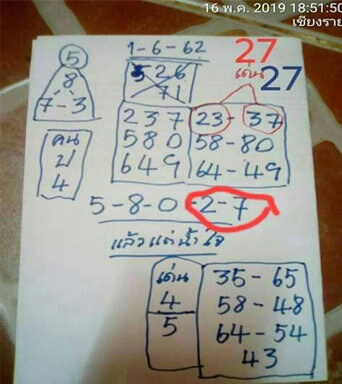 16 พ.ค. 2019 18:51:50
เชียงราย
1-6-62
27
เด่น 27
5
8
7-3
526
71
237 23-37
580 58-80
649 64-49
คน
ป
4
5-8-0-2-7
แล้วแต่น้ำใจ
เด่น
4
5
35-65
58-48
64-54
43